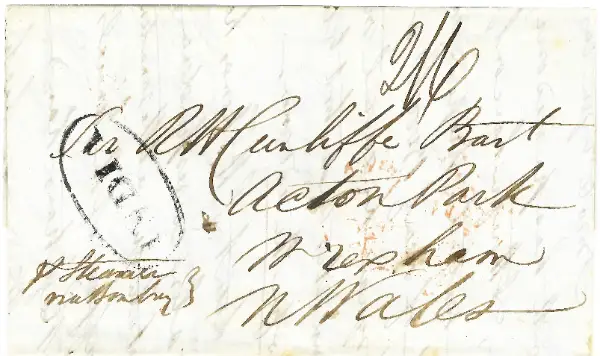 2/6
Sir R H Cunliffe Bart
Acton Park
Wrexham
N Wales
INDIA
p Steamer
via Bombay